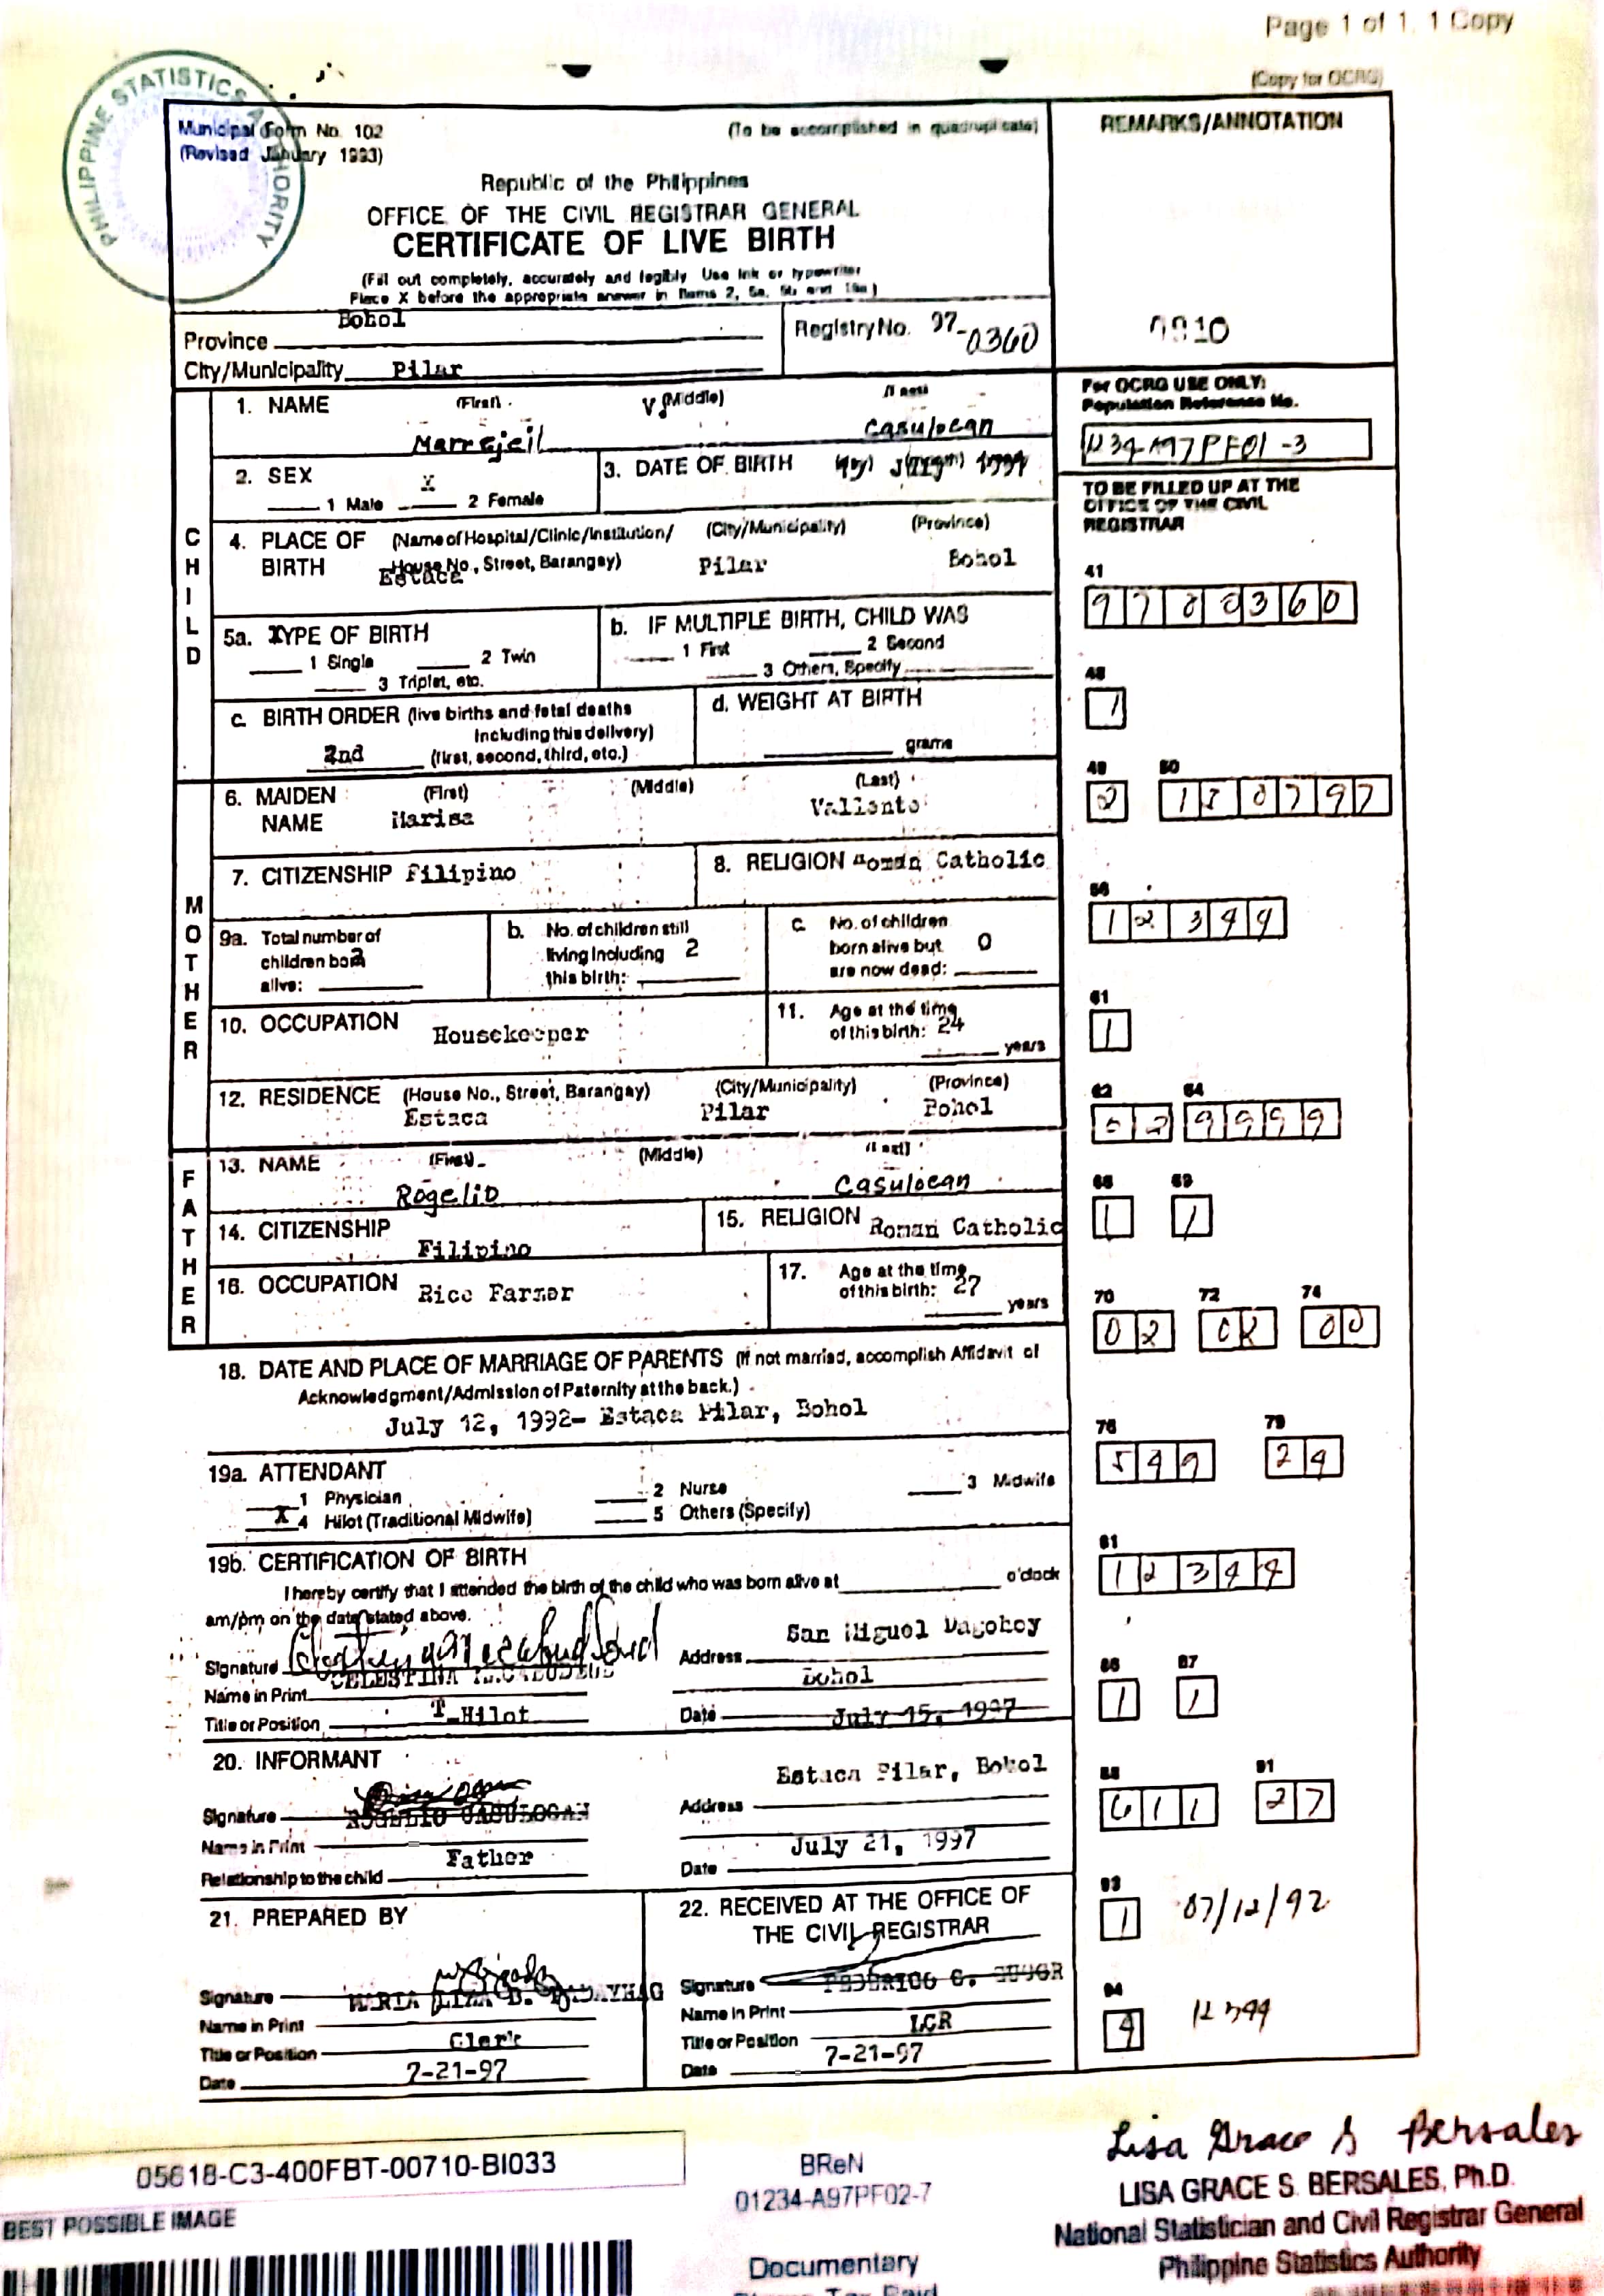 Page 1 of 1, 1 Copy
(Copy for OCRG)
PHILIPPINE STATISTICS AUTHORITY
Municipal Form No. 102
(To be accomplished in quadruplicate)
(Revised January 1993)
Republic of the Philippines
OFFICE OF THE CIVIL REGISTRAR GENERAL
CERTIFICATE OF LIVE BIRTH
(Fill out completely, accurately and legibly Use ink or typewriter
Place X before the appropriate answer in Items 2, 5a, 5b and 19a)
Province Bohol
Registry No. 97-0360
City/Municipality Pilar
REMARKS/ANNOTATION
For OCRG USE ONLY:
Population Reference No.
TO BE FILLED UP AT THE
OFFICE OF THE CIVIL
REGISTRAR
CHILD
1. NAME (First) (Middle) (Last)
V. Casulocan
2. SEX
1 Male X 2 Female
3. DATE OF BIRTH
4. PLACE OF BIRTH (Name of Hospital/Clinic/Institution/ House No., Street, Barangay) (City/Municipality) (Province)
Estaca Pilar Bohol
5a. TYPE OF BIRTH
1 Single 2 Twin
3 Triplet, etc.
b. IF MULTIPLE BIRTH, CHILD WAS
1 First 2 Second
3 Others, Specify
c. BIRTH ORDER (live births and fetal deaths
including this delivery)
2nd (first, second, third, etc.)
d. WEIGHT AT BIRTH
grams
MOTHER
6. MAIDEN NAME (First) (Middle) (Last)
Marisa Vallente
7. CITIZENSHIP Filipino
8. RELIGION Roman Catholic
9a. Total number of
children born
alive: 2
b. No. of children still
living including 2
this birth:
c. No. of children
born alive but 0
are now dead:
10. OCCUPATION Housekeeper
11. Age at the time
of this birth: 24
years
12. RESIDENCE (House No., Street, Barangay) (City/Municipality) (Province)
Estaca Pilar Bohol
FATHER
13. NAME (First) (Middle) (Last)
Rogelio Casulocan
14. CITIZENSHIP Filipino
15. RELIGION Roman Catholic
16. OCCUPATION Rice Farmer
17. Age at the time
of this birth: 27
years
18. DATE AND PLACE OF MARRIAGE OF PARENTS (If not married, accomplish Affidavit of
Acknowledgment/Admission of Paternity at the back.)
July 12, 1992- Estaca Pilar, Bohol
19a. ATTENDANT
1 Physician 2 Nurse 3 Midwife
X 4 Hilot (Traditional Midwife) 5 Others (Specify)
19b. CERTIFICATION OF BIRTH
I hereby certify that I attended the birth of the child who was born alive at o'clock
am/pm on the date stated above.
Signature
Name in Print CELESTINA
Title or Position T-Hilot
Address San Miguel Dagohoy
Bohol
Date July 15, 1997
20. INFORMANT
Signature
Name in Print ROGELIO CASULOCAN
Relationship to the child Father
Address Estaca Pilar, Bohol
Date July 21, 1997
21. PREPARED BY
Signature
Name in Print MARIA LIZA B.
Title or Position Clerk
Date 7-21-97
22. RECEIVED AT THE OFFICE OF
THE CIVIL REGISTRAR
Signature
Name in Print FEDERICO
Title or Position LCR
Date 7-21-97
41
9700360
48
1
49 50
2 180797
56
12344
61
1
62 64
02 9999
68 69
1 1
70 72 74
02 02 00
76 79
549 24
81
12344
86 87
1 1
88 91
611 27
93
1 07/12/92
94
05618-C3-400FBT-00710-BI033
BEST POSSIBLE IMAGE
BReN
01234-A97PF02-7
Documentary
Lisa Grace S Bersales
LISA GRACE S. BERSALES, Ph.D.
National Statistician and Civil Registrar General
Philippine Statistics Authority